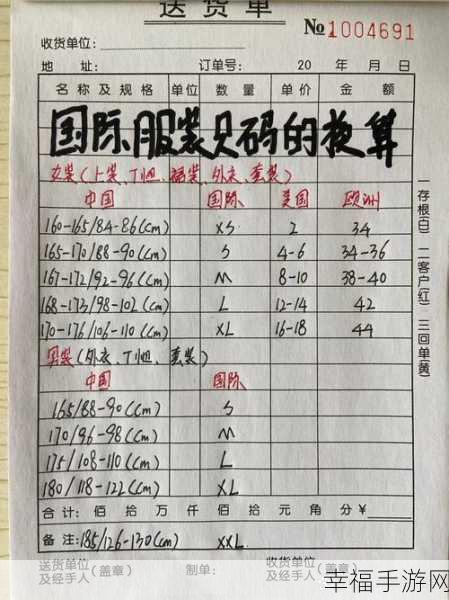 送货单
No 1004691
收货单位:
地 址: 订单号: 20 年 月 日
名称及规格 单位 数量 单价 金额
国际服装尺码的换算
女装(上装、T恤、裙装、外衣、套装)
中国 国际 美国 欧洲
160-165/84-86(cm) XS 2 34
165-170/88-90(cm) S 4-6 34-36
167-172/92-96(cm) M 8-10 38-40
168-173/98-102(cm) L 12-14 42
170-176/106-110(cm) XL 16-18 44
男装(外衣、T恤、套装)
中国 国际
165/88-90(cm) S
170/96-98(cm) M
175/108-110(cm) L
180/118-122(cm) XL
合计: 佰 拾 万 仟 佰 拾 元 角 分 ¥
备注: 185/126-130(cm) XXL
送货单位及经手人(盖章) 制单: 收货单位及经手人(盖章)
一存根(白) 二客户(红) 三回单(黄)
幸福手游网